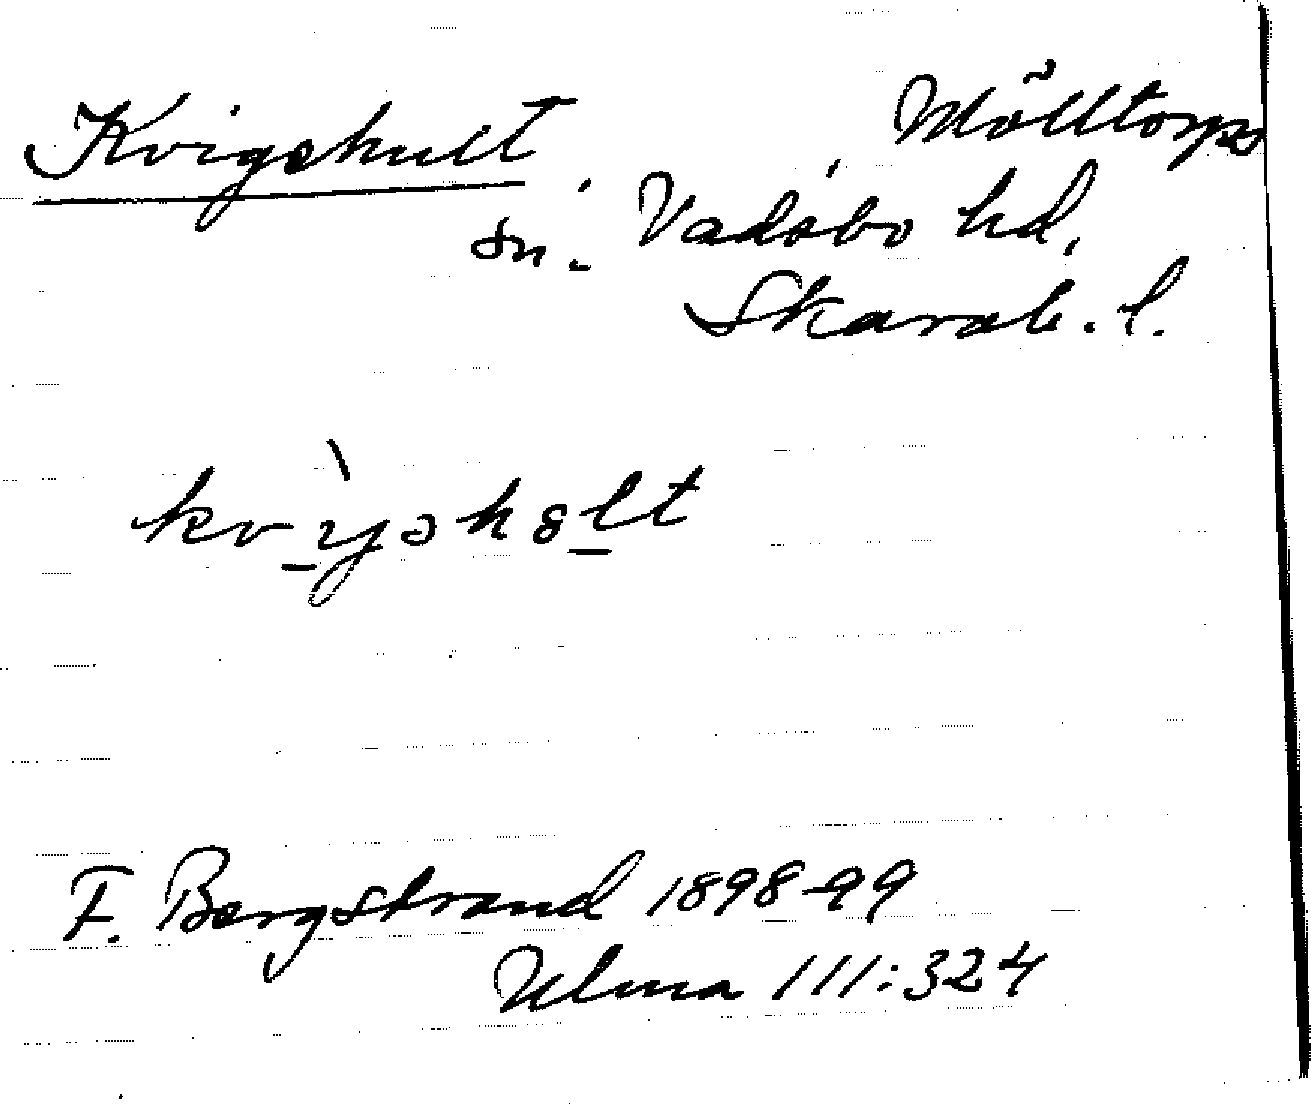 Kvigehult Mölltorps
sn. Vadsbo hd,
Skarab. l.
kv`yəhɷlt
F. Bergstrand 1898-99
Ulma 111:324